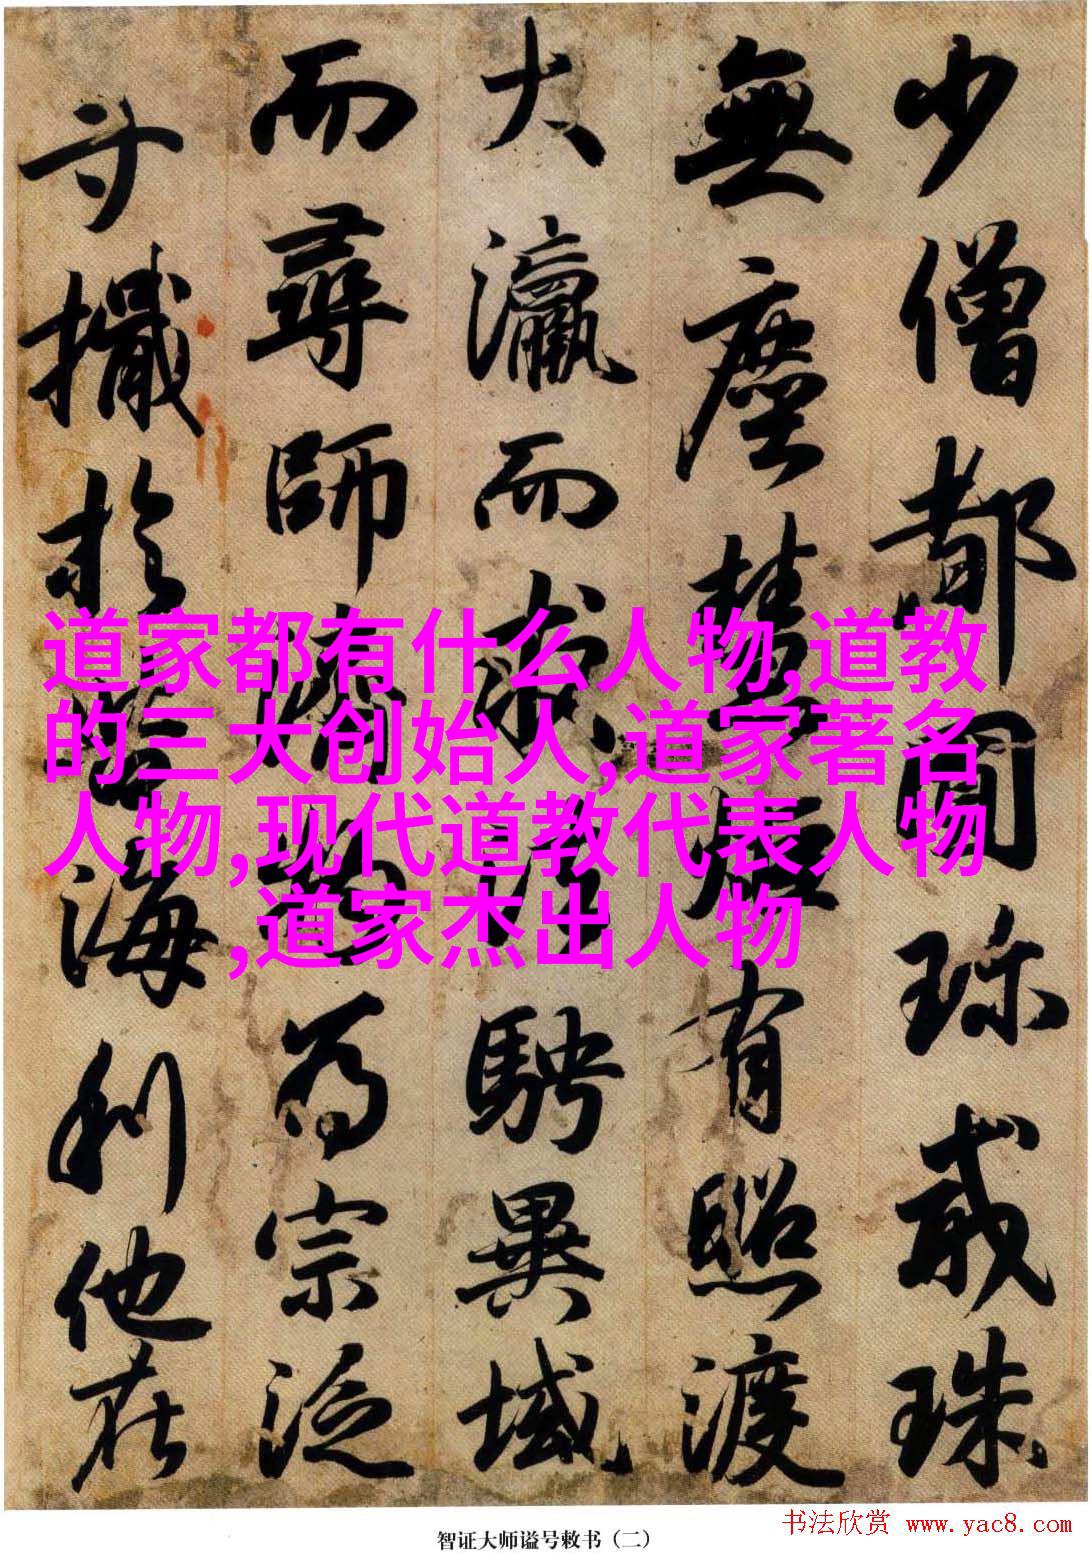 少僧都圓珎戒珠
無塵慧炬有照渡
大瀛而求法騁異域
而尋師濟物為宗泛
寸檝於苦海利他在
道家都有什么人物,道教
的三大创始人,道家著名
人物,现代道教代表人物
,道家杰出人物
书法欣赏 www.yac8.com
智证大师谥号敕书（二）